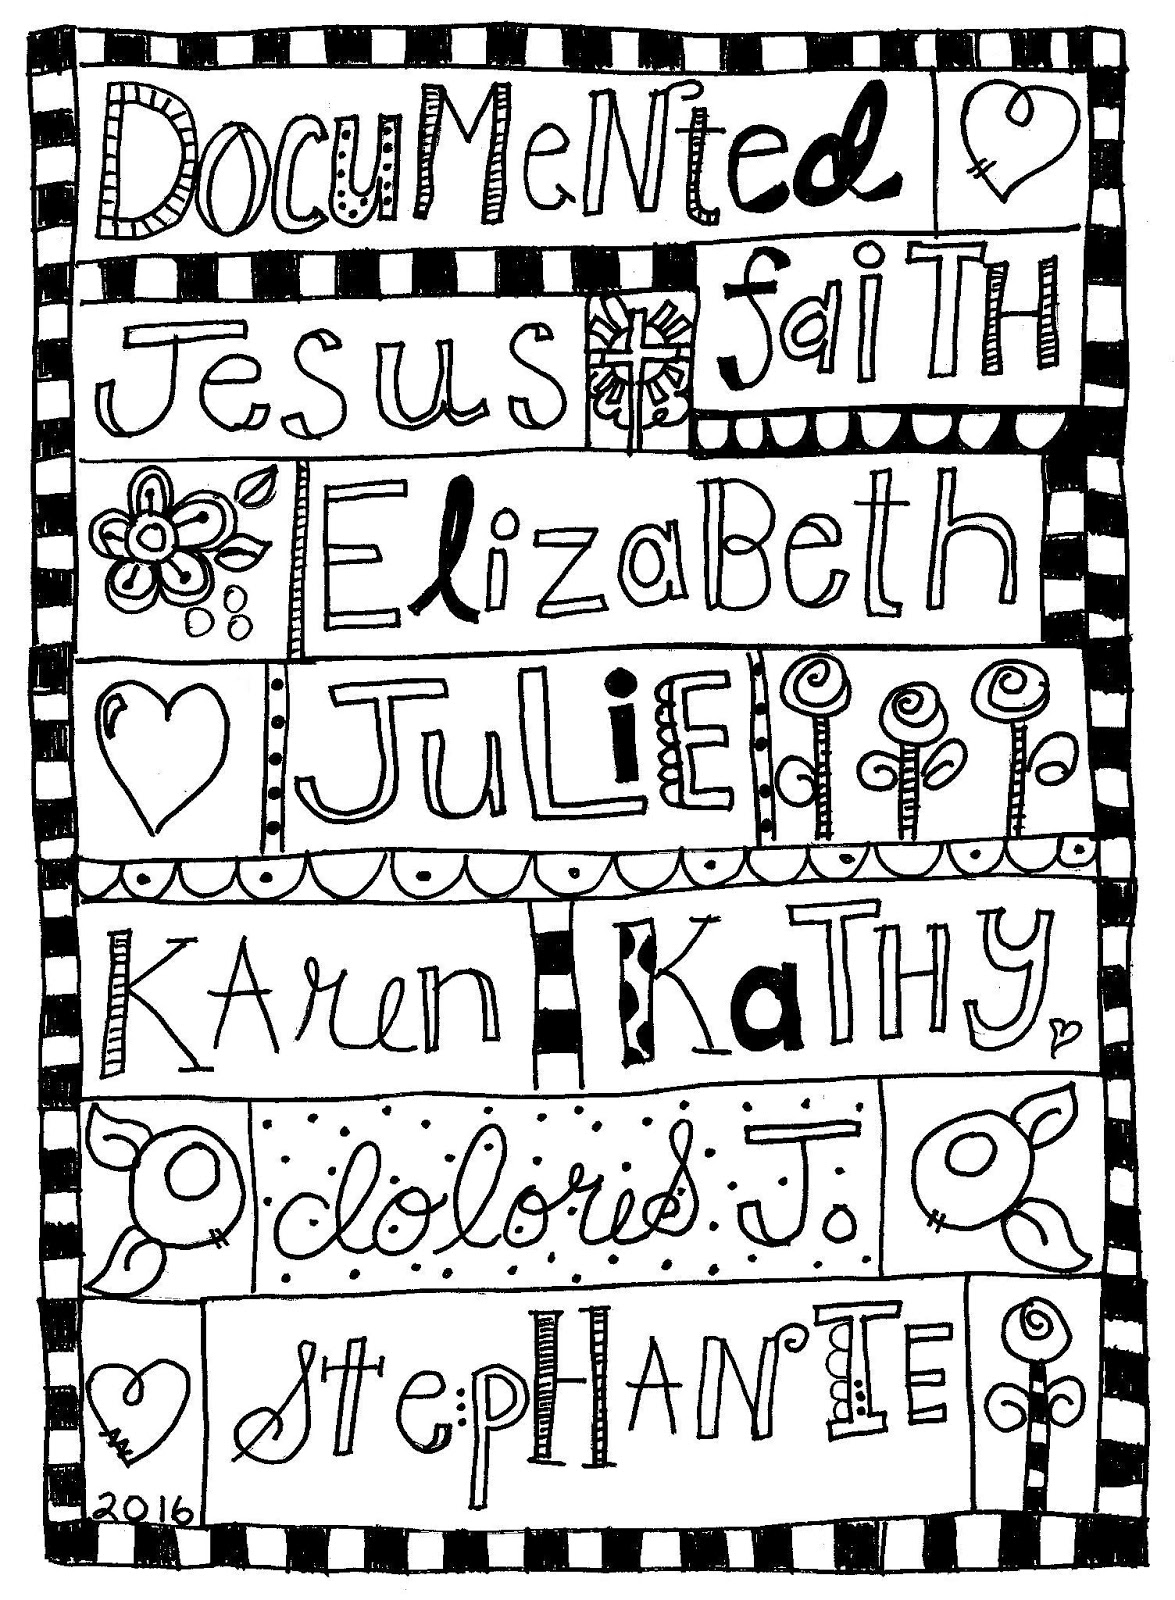 DocuMeNted
faiTH
Jesus
ElizaBeth
JuLiE
KAren KaTHY
dolores J.
stepHANIE
2016